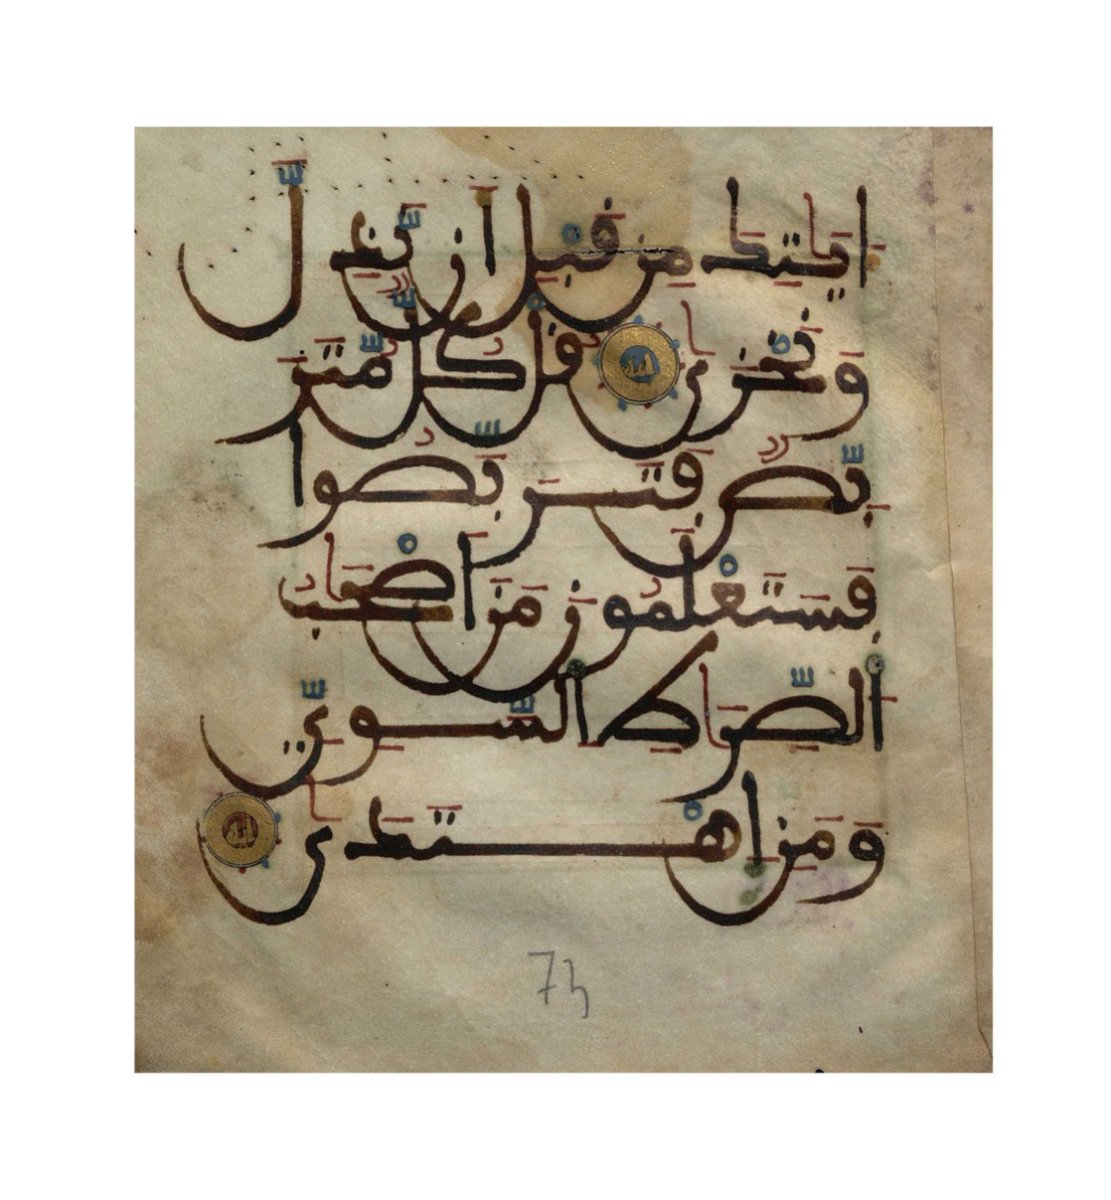 ءَايَٰتِكَ مِن قَبْلِ أَن نَّذِلَّ
وَنَخْزَىٰ قُلْ كُلٌّ مُّتَرَ
بِّصٌ فَتَرَبَّصُوا
فَسَتَعْلَمُونَ مَنْ أَصْحَٰبُ
الصِّرَٰطِ السَّوِيِّ
وَمَنِ اهْتَدَىٰ